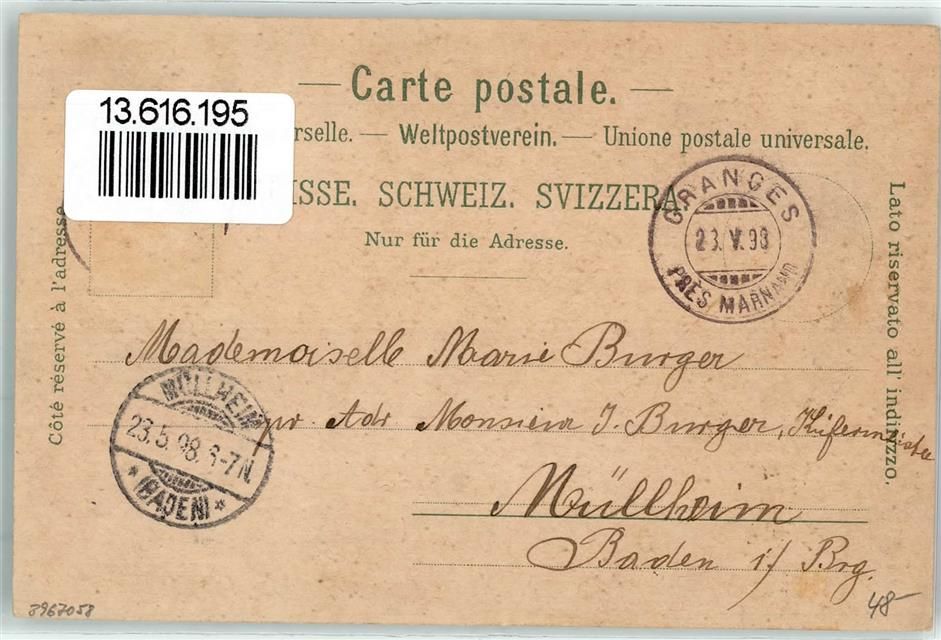 Carte postale.
13.616.195
rselle. — Weltpostverein. — Unione postale universale.
ISSE. SCHWEIZ. SVIZZERA.
Nur für die Adresse.
GRANGES
23.V.98
PRÈS MARNAND
Côté réservé à l'adresse
Lato riservato all' indirizzo.
Mademoiselle Marie Burger
pr Adr Monsieur J. Burger, Küfermeister
Müllheim
Baden i/ Brg.
MÜLLHEIM
23.5.98.6-7N.
* (BADEN) *
3967058
48-